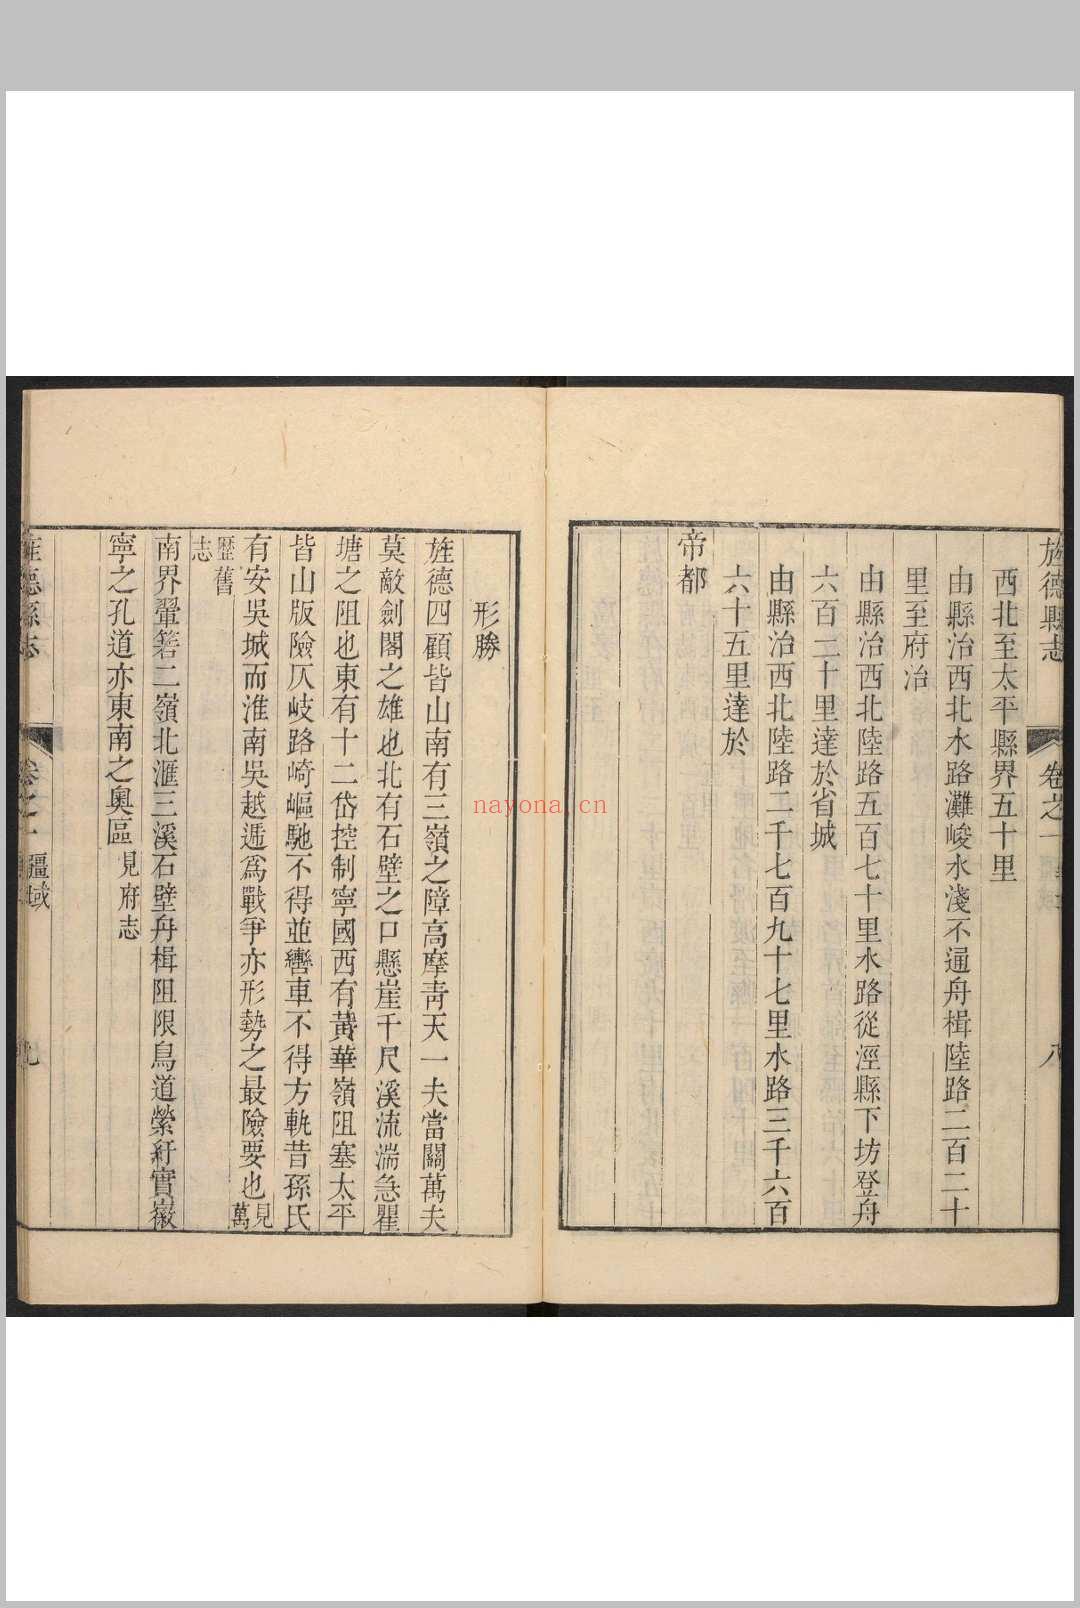 旌德縣志
卷之一
八
西北至太平縣界五十里
由縣治西北水路灘峻水淺不通舟楫陸路二百二十
里至府治
由縣治西北陸路五百七十里水路從涇縣下坊登舟
六百二十里達於省城
由縣治西北陸路二千七百九十七里水路三千六百
六十五里達於
帝都
形勝
旌德四顧皆山南有三嶺之障高摩靑天一夫當關萬夫
莫敵劍閣之雄也北有石壁之口懸崖千尺溪流湍急瞿
塘之阻也東有十二岱控制寧國西有黃華嶺阻塞太平
皆山版險仄岐路崎嶇馳不得並轡車不得方軌昔孫氏
有安吳城而淮南吳越遞爲戰爭亦形勢之最險要也見萬
歷舊志
南界翬箬二嶺北滙三溪石壁舟楫阻限鳥道縈紆實徽
寧之孔道亦東南之奧區見府志
旌德縣志
卷之一
疆域
九
nayona.cn